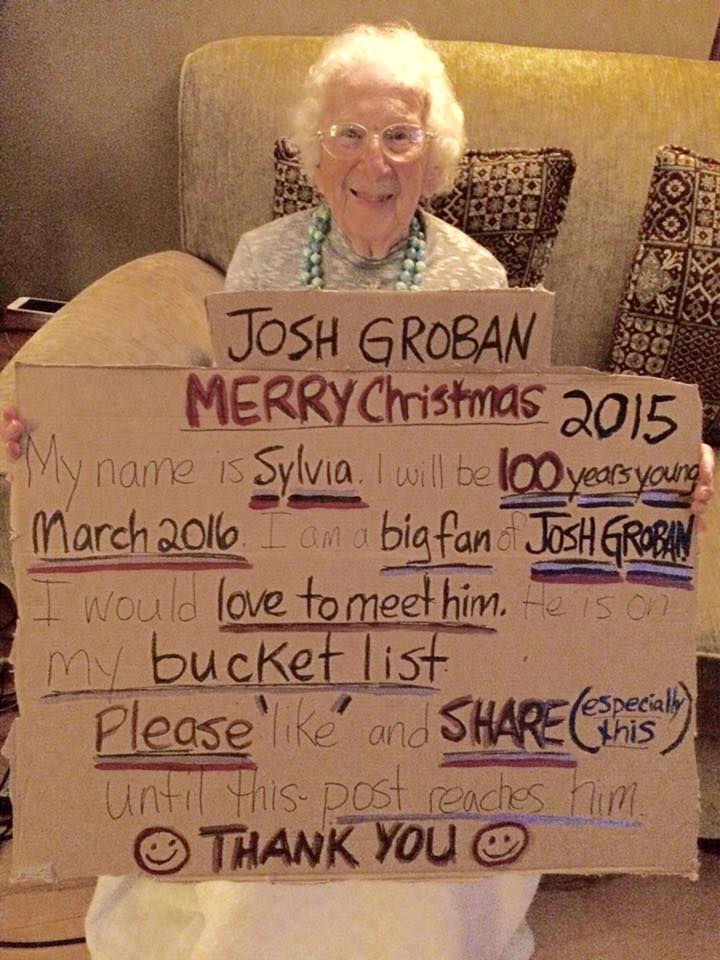 JOSH GROBAN
MERRY Christmas 2015
My name is Sylvia. I will be 100 years young
March 2016. I am a big fan of JOSH GROBAN
I would love to meet him. He is on
my bucket list.
Please "like" and SHARE (especially
this)
until this post reaches him.
THANK YOU